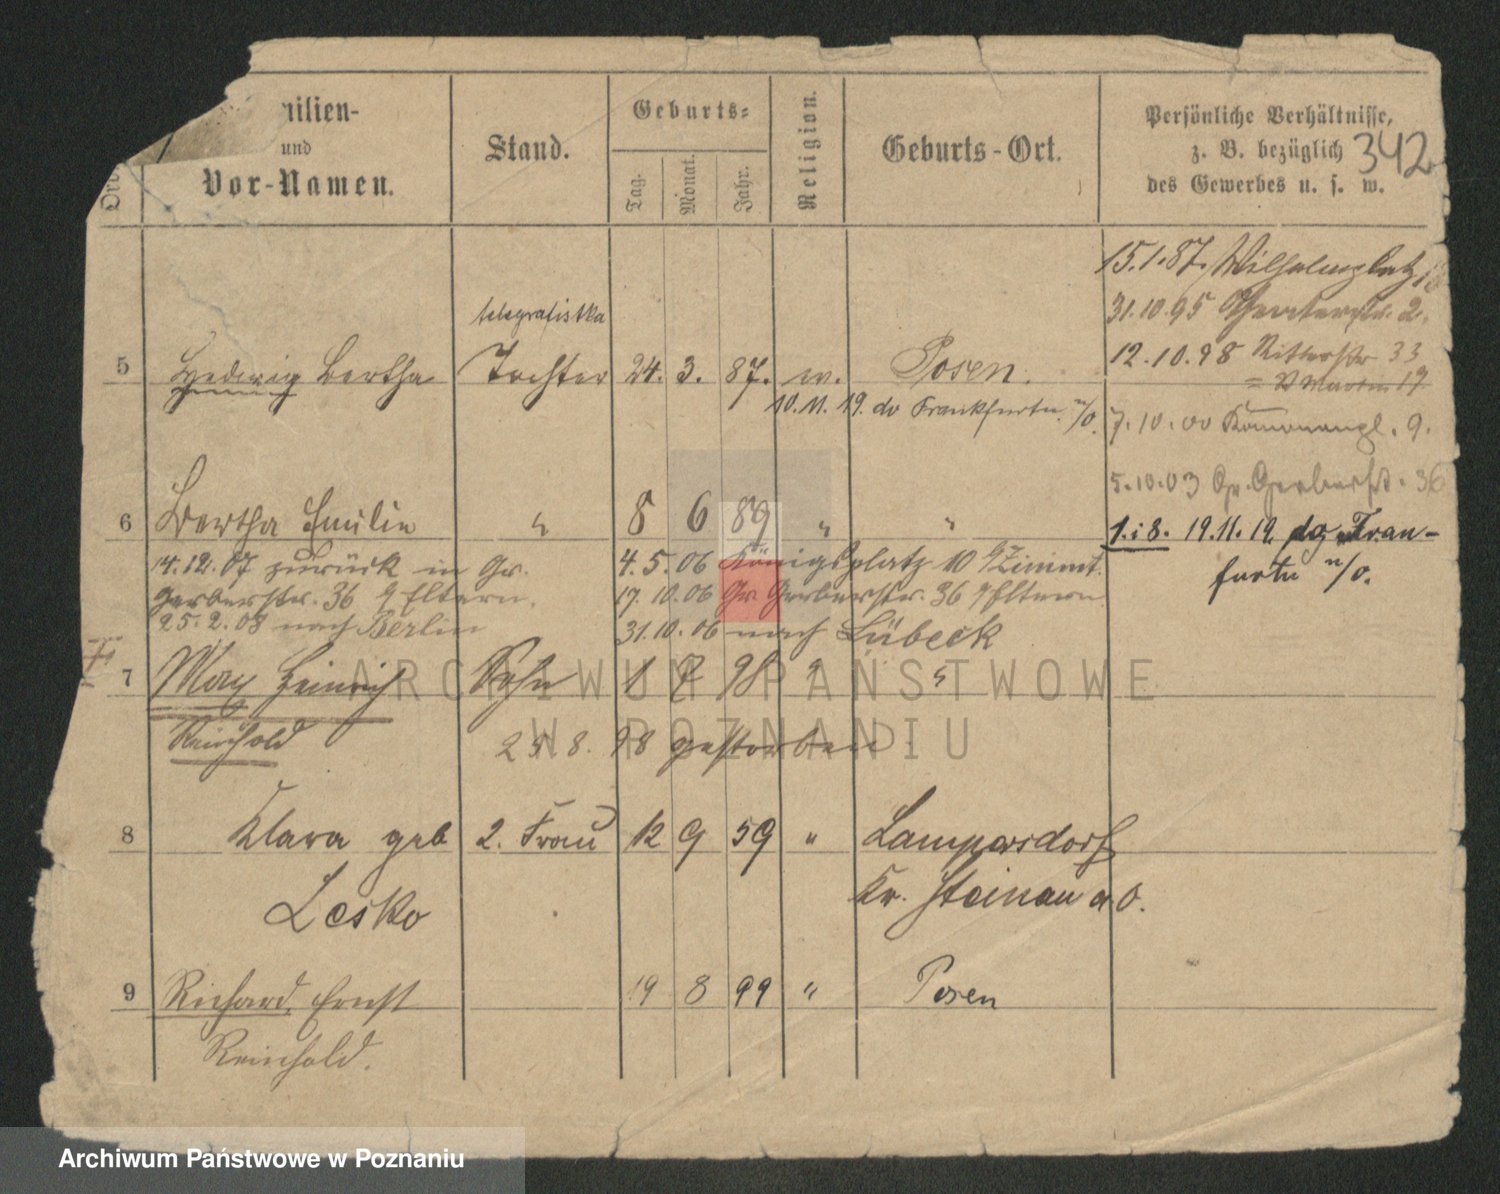 Familien-
und
Vor-Namen.
Stand.
Geburts-
Tag.
Monat.
Jahr.
Religion.
Geburts-Ort.
Persönliche Verhältnisse,
z. B. bezüglich
des Gewerbes u. s. w.
342
15.1.87. Wilhelmsplatz
31.10.95 2.
telegrafistka
12.10.98 Ritterstr 33
5 Hedwig Bertha Tochter 24. 3. 87. w. Posen.
= St Martin 17
10.11.19. do Frankfurtu n/O.
7.10.00 9.
5.10.03 Gr. Gerberstr. 36
6 Bertha Emilie " 8 6 89 " "
1. i 8. 19.11.19 do Fran-
furtu n/O.
14.12.07 zurück in Gr. 4.5.06 Königsplatz 10
Gerberstr. 36 Eltern. 17.10.06 Gr Gerberstr. 36 Eltern
25.2.08 nach Berlin 31.10.06 nach Lübeck
7 Max Heinrich Sohn 1 7 98 " "
Reinhold 25 8. 98 gestorben
8 Klara geb 2. Frau 12 9 59 " Lampersdorf
Lesko Kr. Steinau a O.
9 Richard Ernst 19 8 99 " Posen
Reinhold.
ARCHIWUM PAŃSTWOWE
W POZNANIU
Archiwum Państwowe w Poznaniu